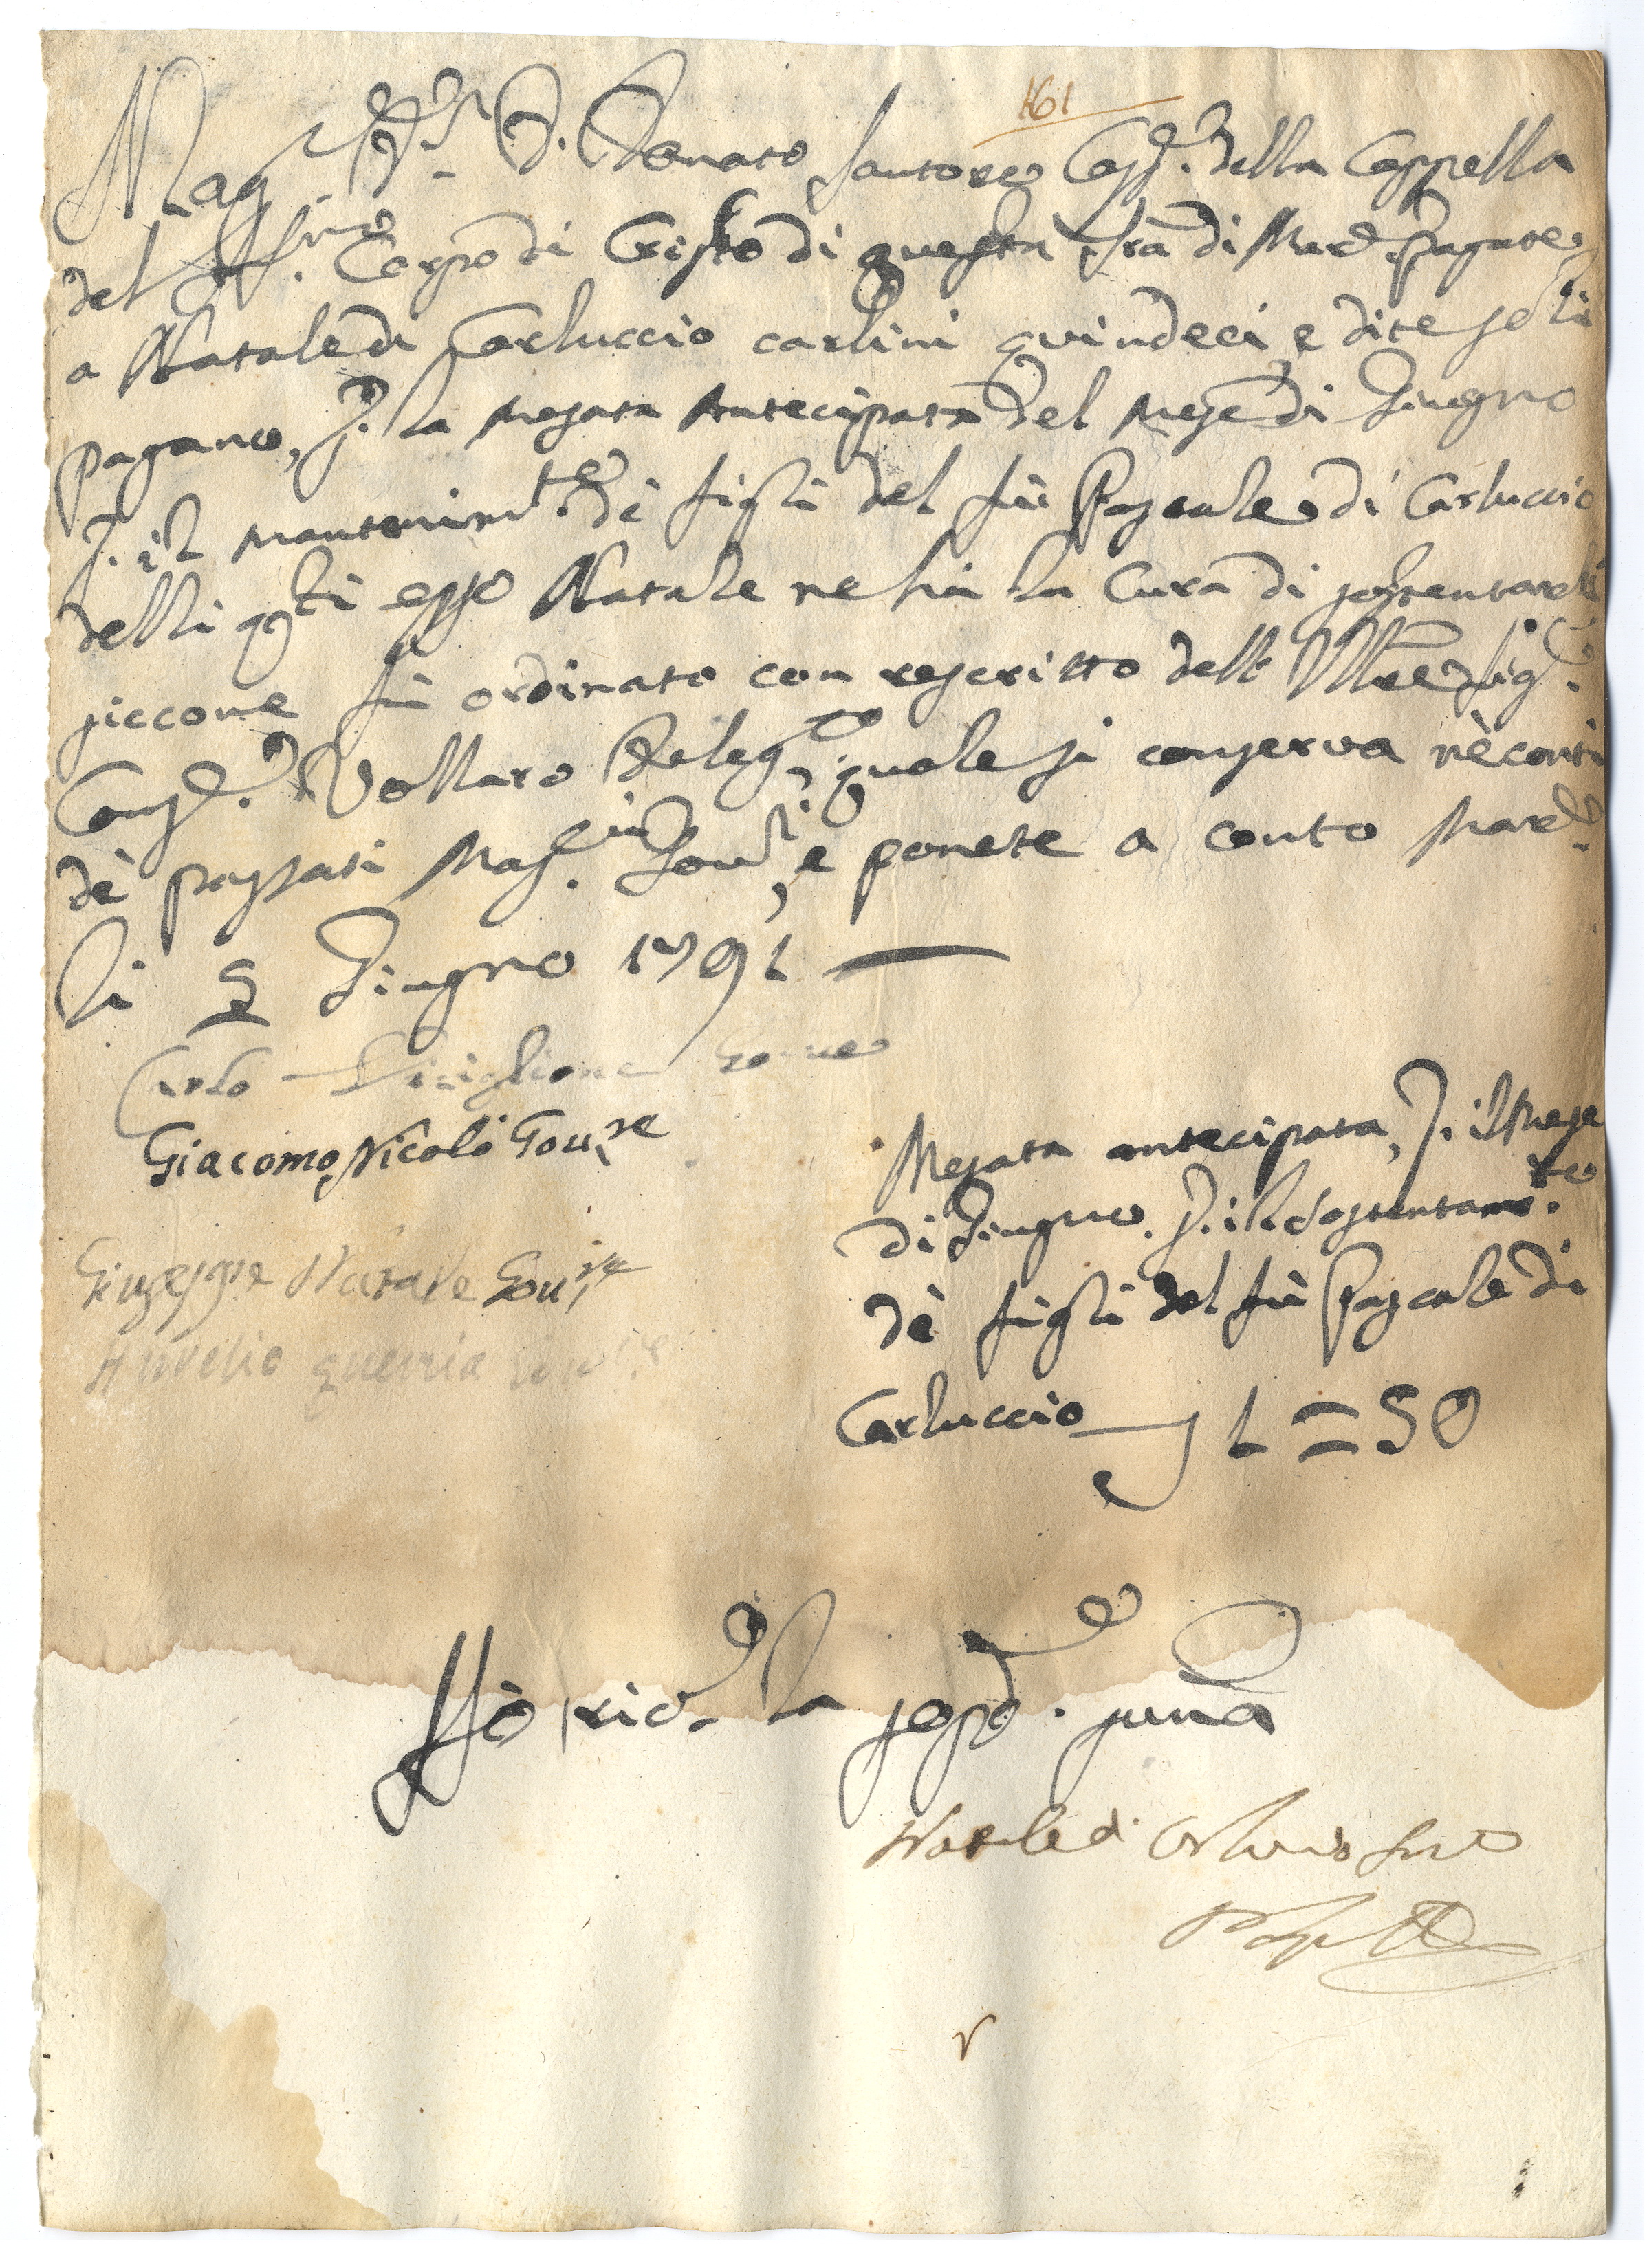 161
Mag.co D. Donato Santoro Cass.re della Cappella
del SS.mo Corpo di Cristo di questa Tra di Mard. Pagate
a Natale di Carluccio carlini quindeci, e dite se li
pagano, P. la mesata antecipata del mese di Giugno
P. il mantenim.to dè figli del fù Pascale di Carluccio
delli q.li esso Natale ne hà la Cura di sostentarli
siccome fù ordinato con rescritto dell' Ill.re Sig.r
Cons.re Vollaro Deleg.to, quale si conserva nè conti
dè passati Mag.ci Gov.ri, e ponete a conto Mard.
li 5 Giugno 1791
Carlo Gov.re
Giacomo Nicolò Gou.re
Giuseppe Natale Gou.re
Aurelio Gou.re
Mesata antecipata, P. il Mese
di Giugno. P. il Sostentam.to
dè figli del fù Pascale di
Carluccio 1 = 50
Hò ric.o la sopd.a suma
Natale di Carluccio